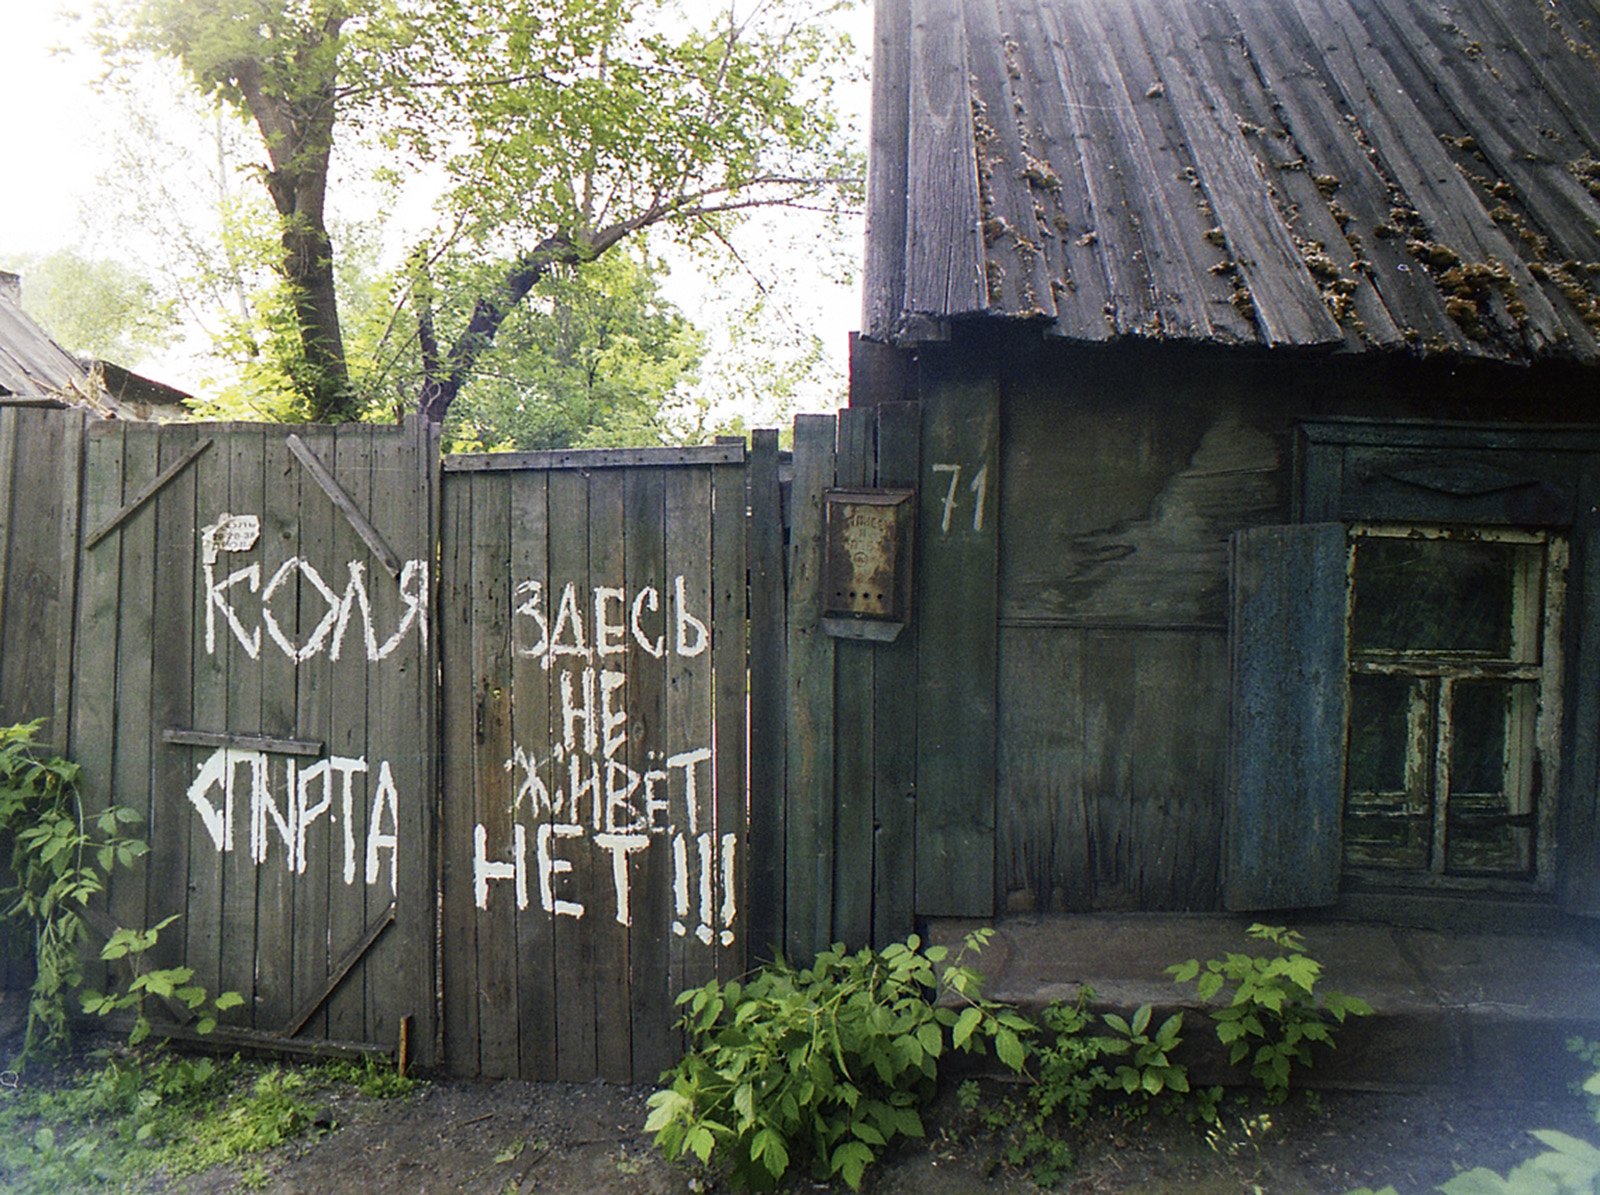 КОЛЯ
СПИРТА
ЗДЕСЬ
НЕ
ЖИВЁТ
НЕТ!!!
71